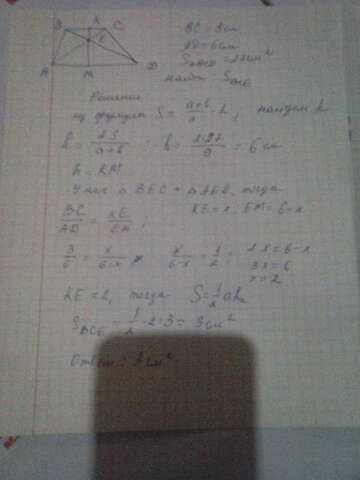 B K C
E
A M D
BC = 3см
AD = 6см
S ABCD = 27см²
найти S BCE
Решение
из формулы S = (a+b)/2 · h, найдем h
h = 2S/(a+b) : h = 2·27/9 = 6 см
h = KM
У нас △ BEC ~ △ AED, тогда
BC/AD = KE/EM ; KE = x; EM = 6-x
3/6 = x/(6-x) ; x/(6-x) = 1/2 ; 2x = 6-x
3x = 6
x = 2
KE = 2, тогда S = 1/2 ah
S BCE = 1/2 · 2 · 3 = 3 см²
Ответ: 3 см²